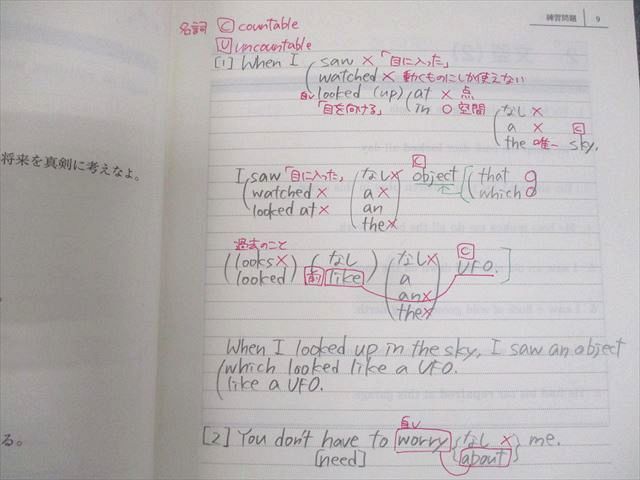 練習問題 9
名詞 C countable
U uncountable
[1] When I saw × 「目に入った」
watched × 動くものにしか使えない
自V looked (up) at × 点
「目を向ける」 in ○ 空間
なし ×
a × C
the 唯一 sky,
将来を真剣に考えなよ。
I saw 「目に入った」 なし× C object that ○
watched × a × which ○
looked at × an
the×
過去のこと
looks × なし なし× C UFO.
looked 前 like a
an×
the×
When I looked up in the sky, I saw an object
which looked like a UFO.
like a UFO.
る。
自V
[2] You don't have to worry なし × me.
[need] about